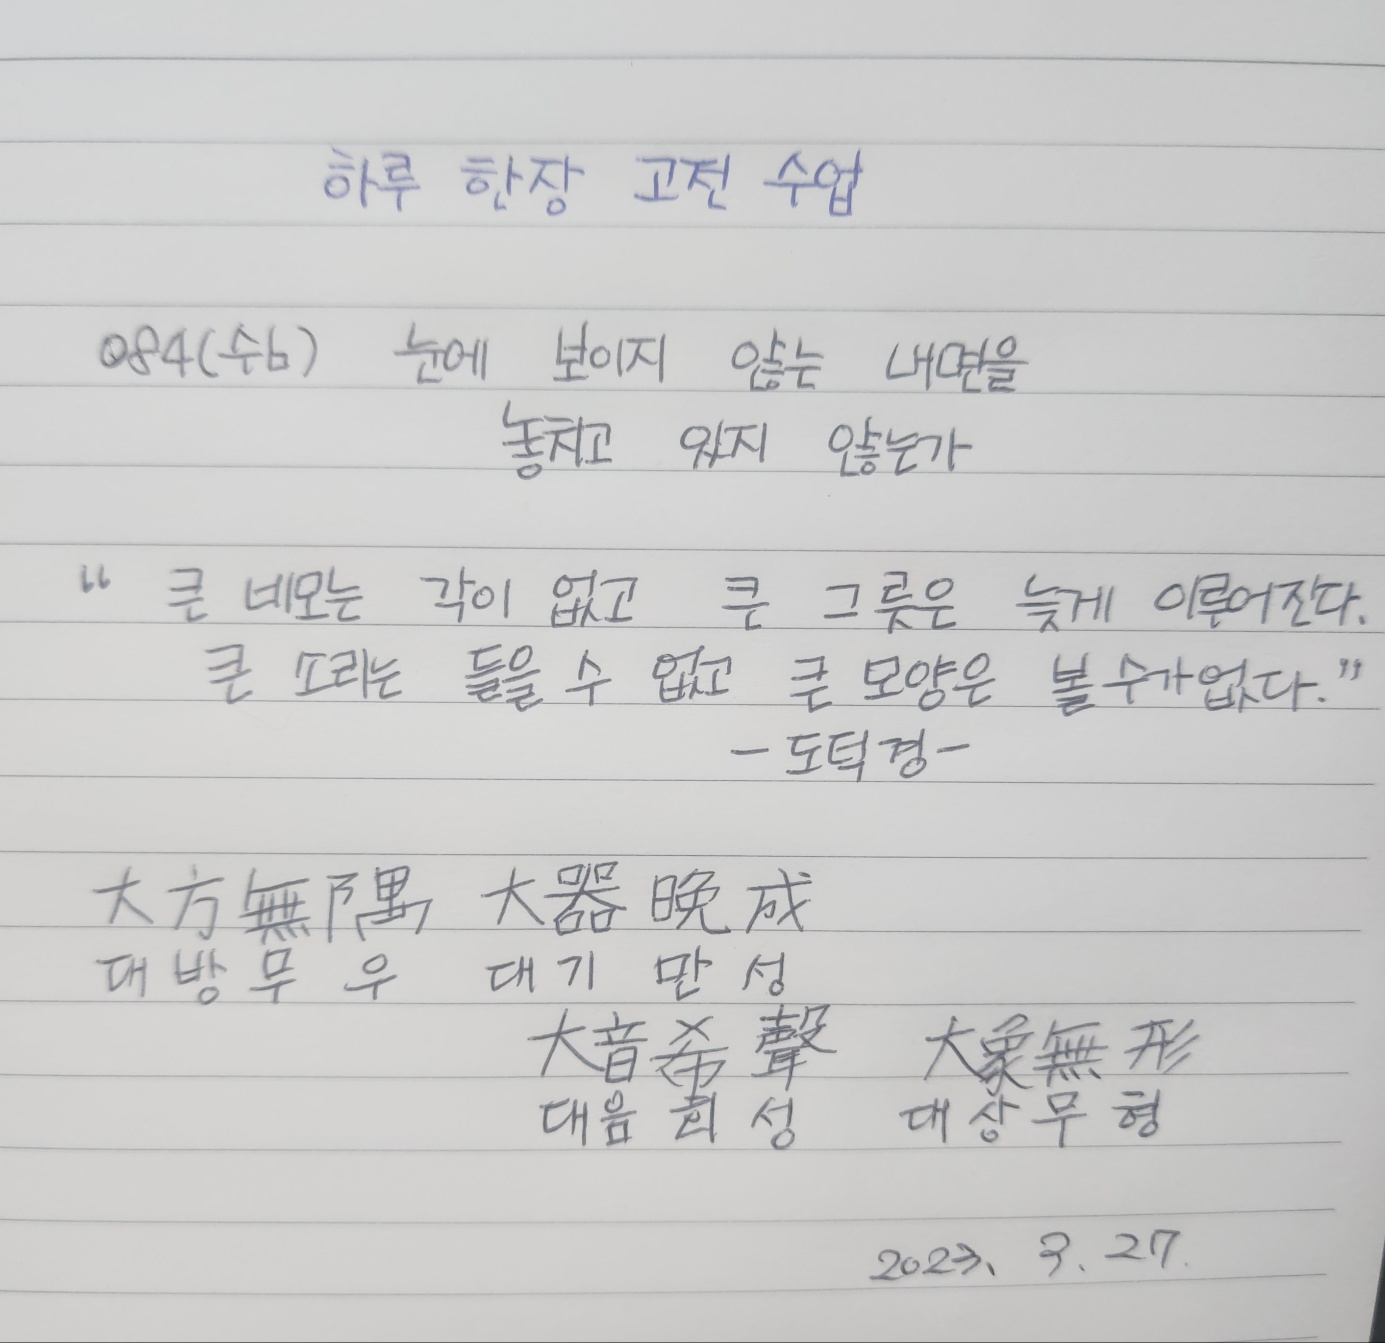 하루 한장 고전 수업
084(수b) 눈에 보이지 않는 내면을
놓치고 있지 않는가
“ 큰 네모는 각이 없고 큰 그릇은 늦게 이루어진다.
큰 소리는 들을 수 없고 큰 모양은 볼 수가 없다.”
- 도덕경 -
大方無隅 大器晩成
대방무우 대기만성
大音希聲 大象無形
대음희성 대상무형
2023. 3. 27.